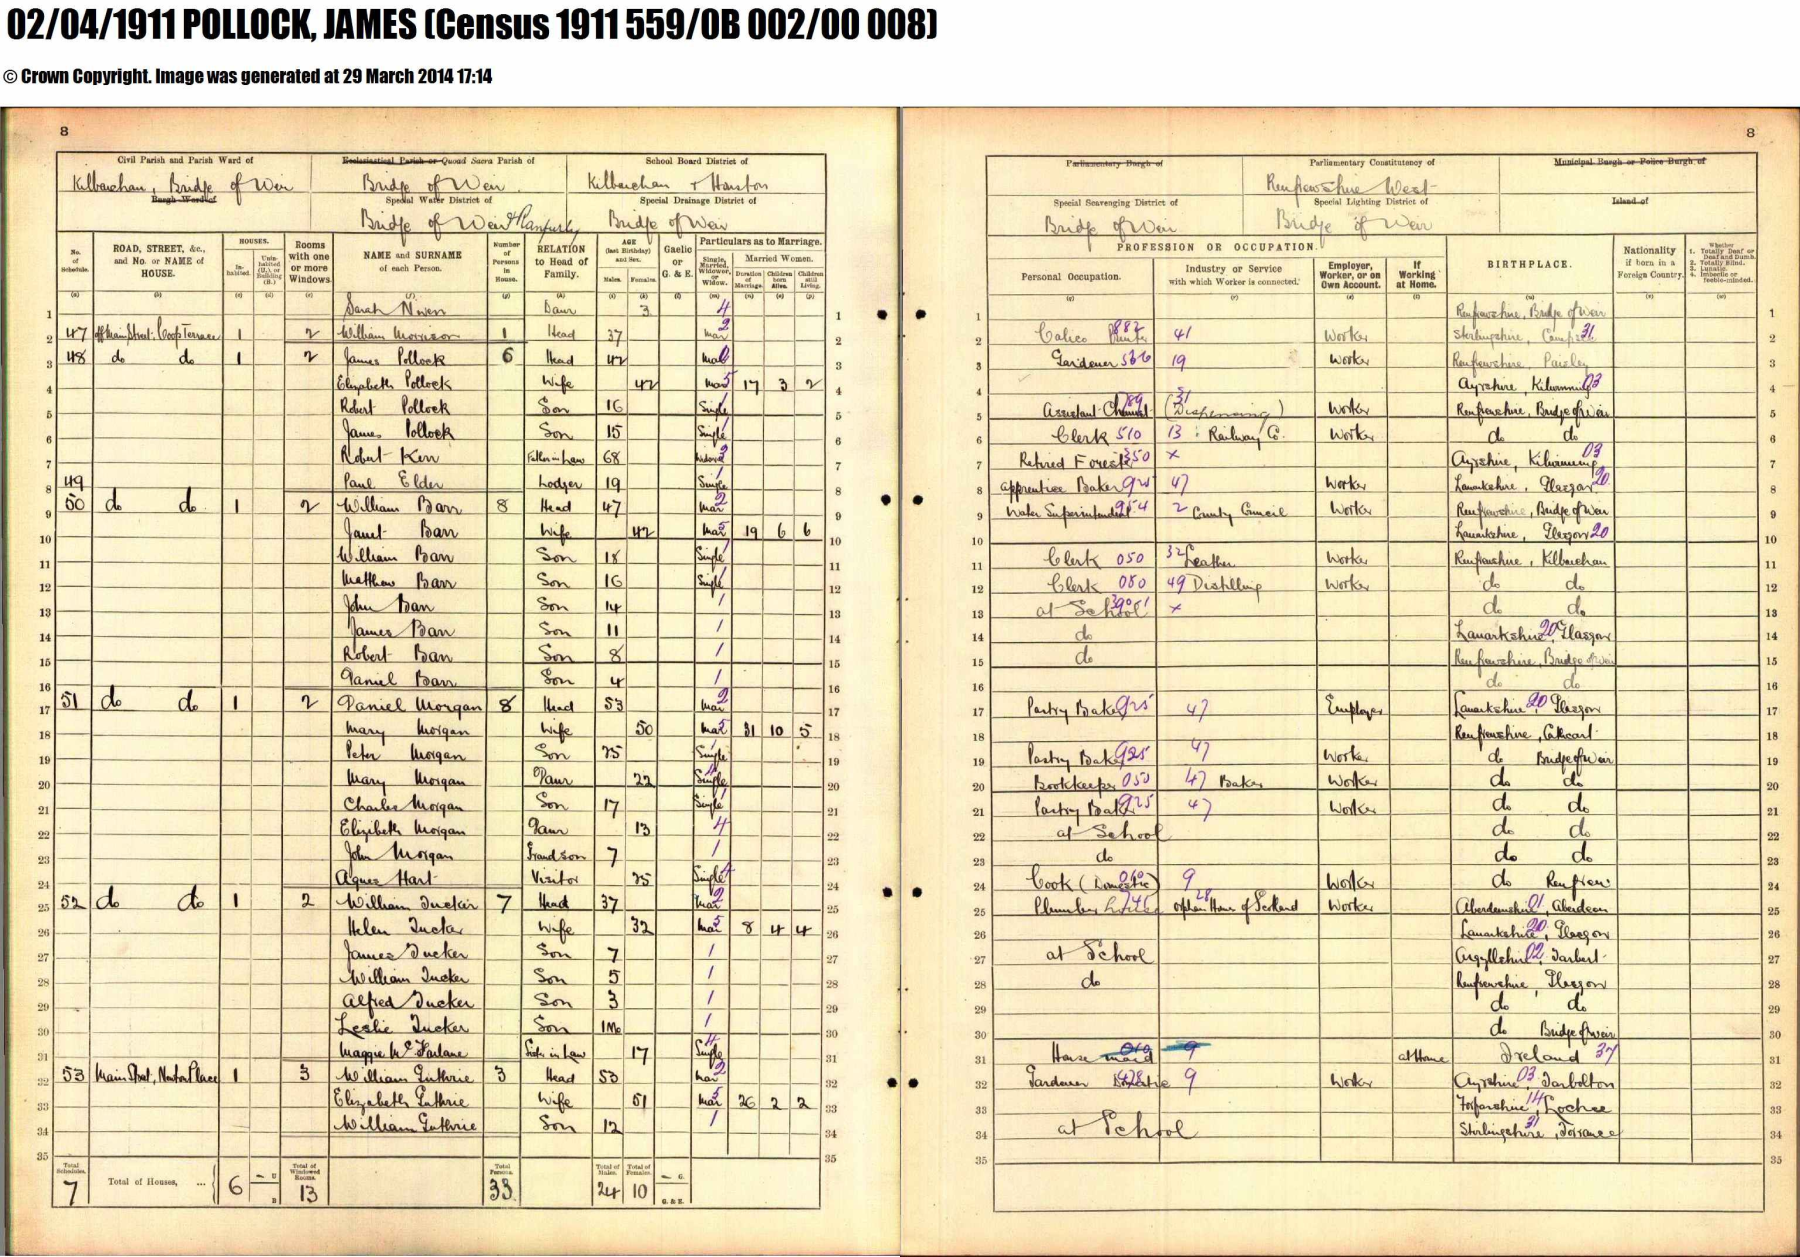 02/04/1911 POLLOCK, JAMES (Census 1911 559/0B 002/00 008)
© Crown Copyright. Image was generated at 29 March 2014 17:14
8
Civil Parish and Parish Ward of Ecclesiastical Parish or Quoad Sacra Parish of School Board District of
Kilbarchan, Bridge of Weir Bridge of Weir Kilbarchan & Houston
Burgh Ward of Special Water District of Special Drainage District of
Bridge of Weir & Ranfurly Bridge of Weir
No. of Schedule. ROAD, STREET, &c., and No. or NAME of HOUSE. HOUSES. Inhabited. Uninhabited (U.), or Building (B.) Rooms with one or more Windows. NAME and SURNAME of each Person. Number of Persons in House. RELATION to Head of Family. AGE (last Birthday) and Sex. Males. Females. Gaelic or G. & E. Particulars as to Marriage. Single, Married, Widower, or Widow. Married Women. Duration of Marriage. Children born Alive. Children still Living.
1 Sarah Daur 3 4 1
2 47 off Main Street, Coop Terrace 1 2 William Morrison 1 Head 37 Mar 2 2
3 48 do do 1 2 James Pollock 6 Head 42 Mar 3
4 Elizabeth Pollock Wife 42 Mar 5 17 3 2 4
5 Robert Pollock Son 16 Single 1 5
6 James Pollock Son 15 Single 1 6
7 Robert Kerr Father in Law 68 Widower 3 7
8 49 Paul Elder Lodger 19 Single 1 8
9 50 do do 1 2 William Barr 8 Head 47 Mar 2 9
10 Janet Barr Wife 42 Mar 5 19 6 6 10
11 William Barr Son 18 Single 1 11
12 Matthew Barr Son 16 Single 1 12
13 John Barr Son 14 1 13
14 James Barr Son 11 1 14
15 Robert Barr Son 8 1 15
16 Daniel Barr Son 4 1 16
17 51 do do 1 2 Daniel Morgan 8 Head 53 Mar 2 17
18 Mary Morgan Wife 50 Mar 5 31 10 5 18
19 Peter Morgan Son 25 Single 1 19
20 Mary Morgan Daur 22 Single 4 20
21 Charles Morgan Son 17 Single 1 21
22 Elizabeth Morgan Daur 13 4 22
23 John Morgan Grandson 7 1 23
24 Agnes Hart Visitor 25 Single 4 24
25 52 do do 1 2 William Tucker 7 Head 37 Mar 2 25
26 Helen Tucker Wife 32 Mar 5 8 4 4 26
27 James Tucker Son 7 1 27
28 William Tucker Son 5 1 28
29 Alfred Tucker Son 3 1 29
30 Leslie Tucker Son 1Mo 1 30
31 Maggie McFarlane Sister in Law 17 Single 4 31
32 53 Main Street, Newton Place 1 3 William Guthrie 3 Head 53 Mar 2 32
33 Elizabeth Guthrie Wife 51 Mar 5 26 2 2 33
34 William Guthrie Son 12 1 34
35 35
Total Schedules. 7 Total of Houses, ... 6 – U B Total of Windowed Rooms. 13 Total Persons. 33 Total of Males. 24 Total of Females. 10 – G. G. & E.
8
Parliamentary Burgh of Parliamentary Constituency of Municipal Burgh or Police Burgh of
Renfrewshire West
Special Scavenging District of Special Lighting District of Island of
Bridge of Weir Bridge of Weir
PROFESSION OR OCCUPATION. Personal Occupation. Industry or Service with which Worker is connected. Employer, Worker, or on Own Account. If Working at Home. BIRTHPLACE. Nationality if born in a Foreign Country. Whether 1. Totally Deaf or Deaf and Dumb. 2. Totally Blind. 3. Lunatic. 4. Imbecile or feeble-minded.
1 Renfrewshire, Bridge of Weir 1
2 Calico Printer 882 41 Worker Stirlingshire, Campsie 31 2
3 Gardener 19 Worker Renfrewshire Paisley 3
4 Ayrshire, Kilwinning 03 4
5 Assistant Chemist (Dispensing) 31 Worker Renfrewshire, Bridge of Weir 5
6 Clerk 510 13 Railway Co. Worker do do 6
7 Retired Forester 350 x Ayrshire, Kilwinning 03 7
8 Apprentice Baker 925 47 Worker Lanarkshire, Glasgow 20 8
9 Water Superintendent 954 2 County Council Worker Renfrewshire, Bridge of Weir 9
10 Lanarkshire, Glasgow 20 10
11 Clerk 050 32 Leather Worker Renfrewshire, Kilbarchan 11
12 Clerk 050 49 Distilling Worker do do 12
13 at School 390 x do do 13
14 do Lanarkshire 20, Glasgow 14
15 do Renfrewshire, Bridge of Weir 15
16 do do 16
17 Pastry Baker 925 47 Employer Lanarkshire 20, Glasgow 17
18 Renfrewshire, Cathcart 18
19 Pastry Baker 925 47 Worker do Bridge of Weir 19
20 Bookkeeper 050 47 Baker Worker do do 20
21 Pastry Baker 925 47 Worker do do 21
22 at School do do 22
23 do do do 23
24 Cook (Domestic) 010 9 Worker do Renfrew 24
25 Plumber 28 Orphan Homes of Scotland Worker Aberdeenshire 01, Aberdeen 25
26 Lanarkshire 20, Glasgow 26
27 at School Argyllshire 02, Tarbert 27
28 do Renfrewshire, Glasgow 28
29 do do 29
30 do Bridge of Weir 30
31 House maid 010 9 at Home Ireland 37 31
32 Gardener Domestic 9 Worker Ayrshire 03, Tarbolton 32
33 Forfarshire 14, Lochee 33
34 at School Stirlingshire 31, Torrance 34
35 35